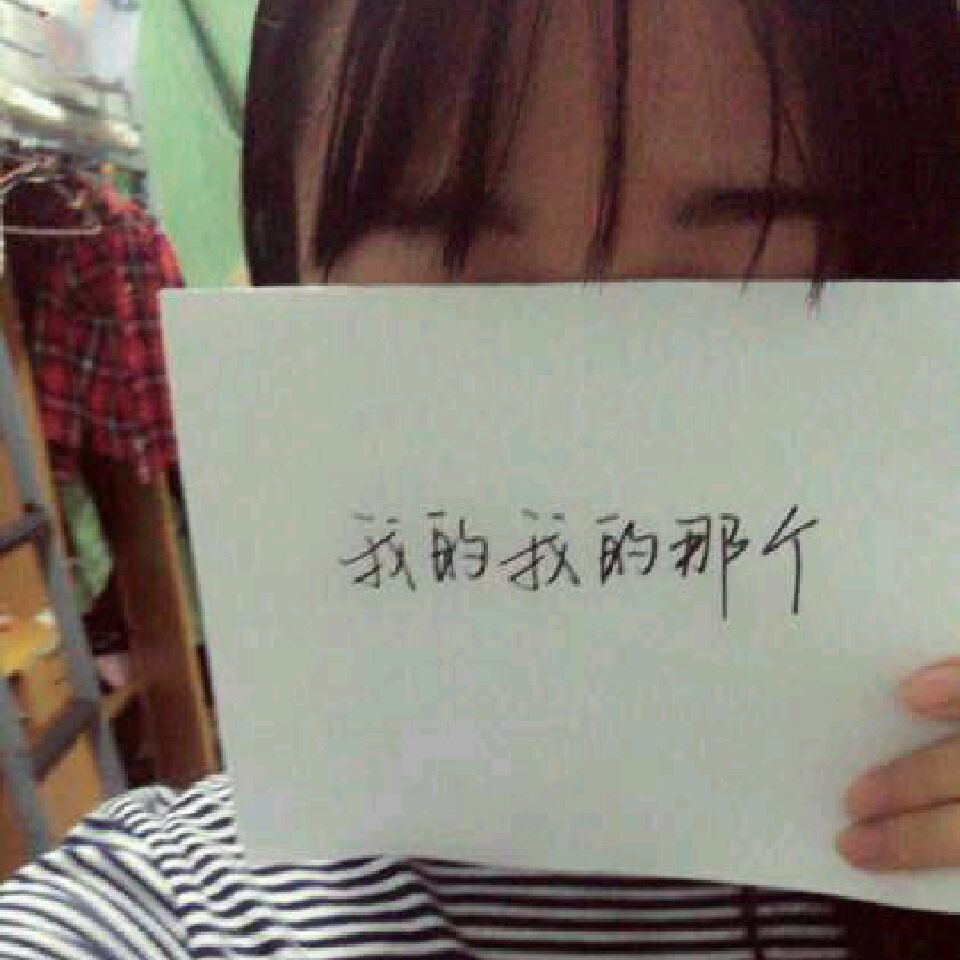 我的我的那个